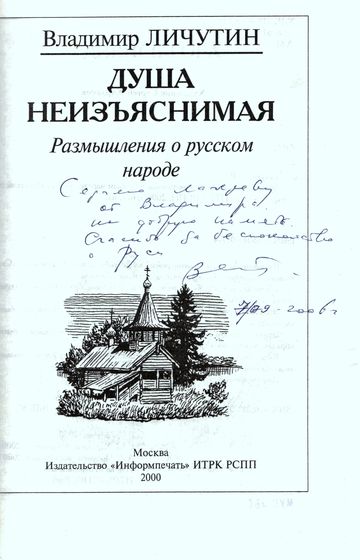 Владимир ЛИЧУТИН
ДУША
НЕИЗЪЯСНИМАЯ
Размышления о русском
народе
Сергею
от Владимира
на добрую память.
Спасибо за беспокойство
о Руси
2006 г
Москва
Издательство «Информпечать» ИТРК РСПП
2000